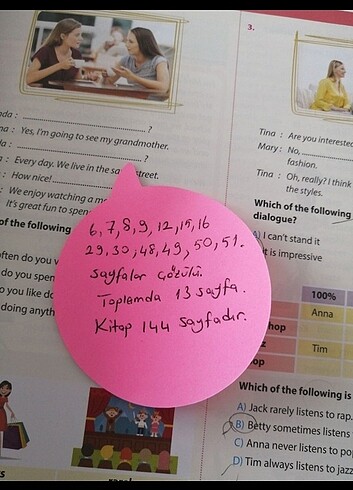 nda : ........................................ ?
na : Yes, I'm going to see my grandmother.
da : ........................................ ?
a : Every day. We live in the sa street.
: How nice! ........................................
: We enjoy watching a mo
It's great fun to spen
of the following
often do you v
do you spen
o you like do
doing anyth
6,7,8,9,12,15,16
29,30,48,49,50,51.
sayfalar çözülü.
Toplamda 13 sayfa.
Kitap 144 sayfadır.
3.
Tina : Are you interested
Mary : No, ........................
fashion.
Tina : Oh, really? I think
the styles.
Which of the following
dialogue?
A) I can't stand
t is impressive
100%
Anna
hop
z
Tim
op
Which of the following is
A) Jack rarely listens to rap.
B) Betty sometimes listens
C) Anna never listens to po
D) Tim always listens to jazz